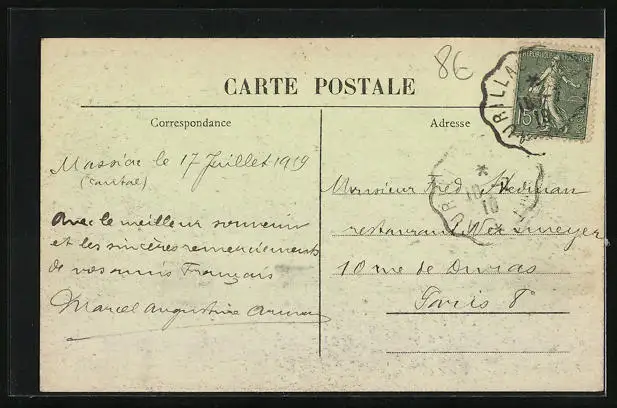 8€
CARTE POSTALE
Correspondance
Adresse
REPUBLIQUE FRANCAISE
15
URILLA
10
18
Massiac le 17 Juillet 1919
(Cantal)
Avec le meilleur souvenir
et les sincères remerciements
de vos amis Français
Marcel Augustine
Monsieur Fred Stedman
restaurant
10 rue de Duras
Paris 8